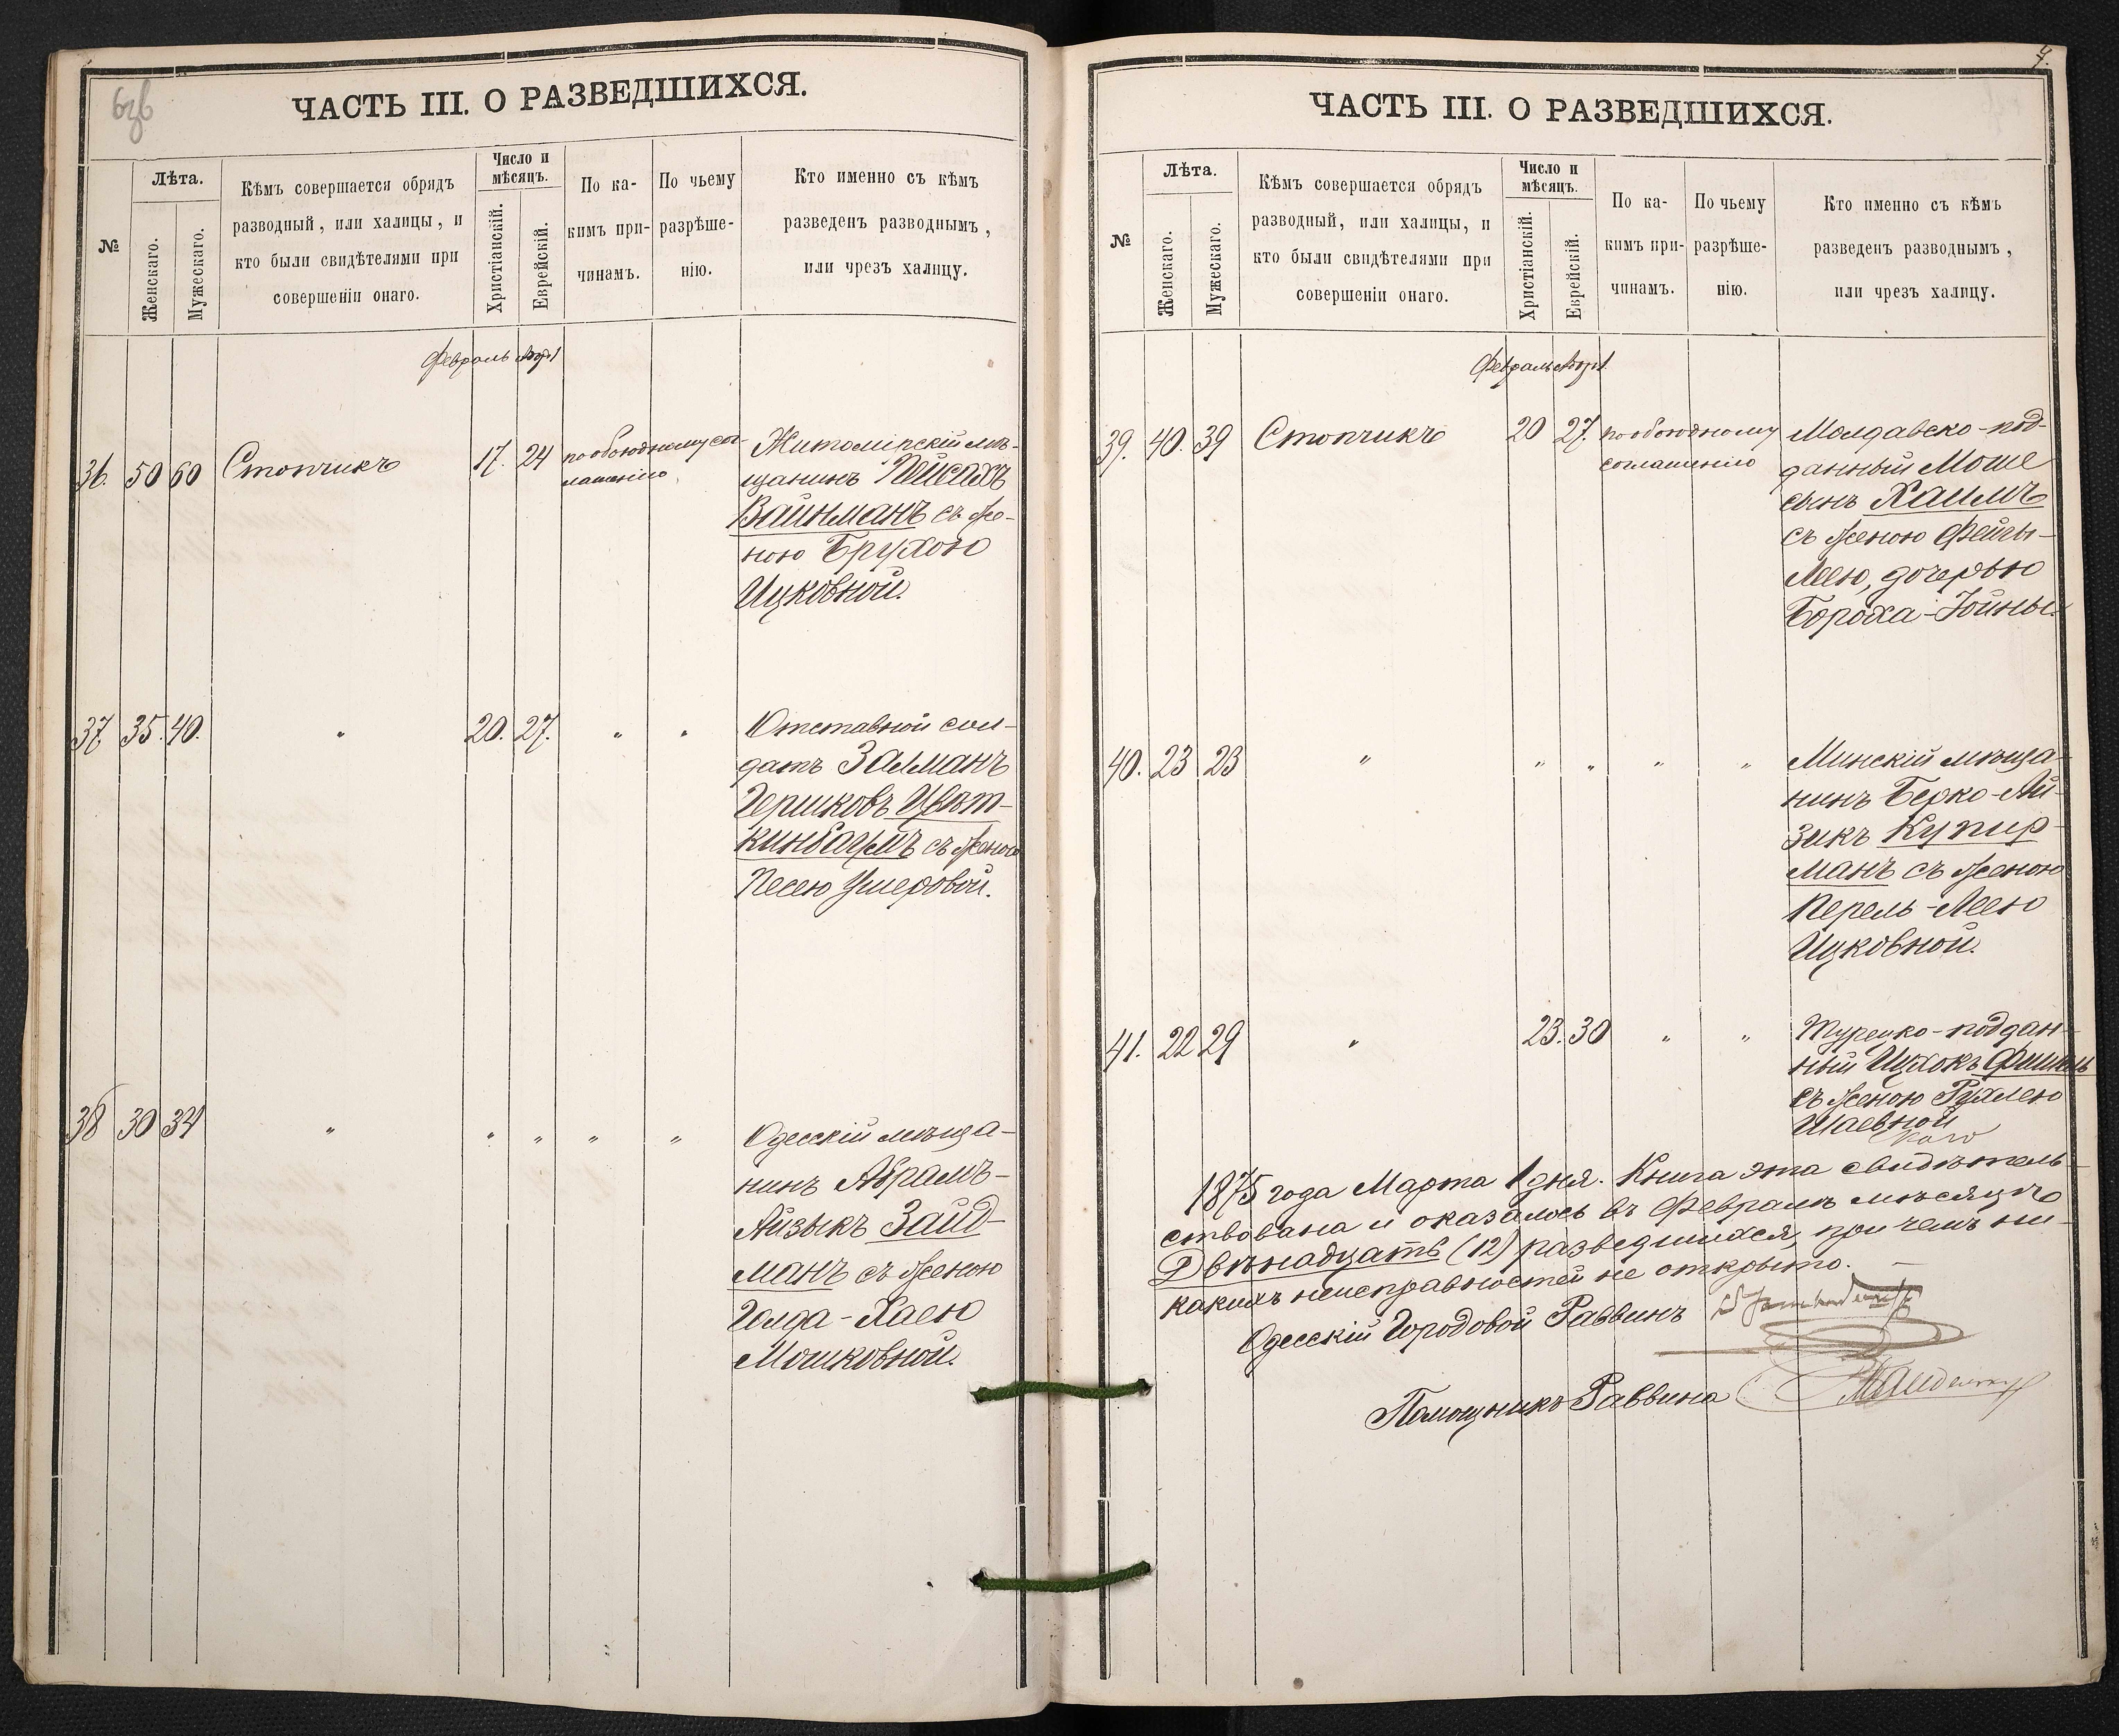 ЧАСТЬ III. О РАЗВЕДШИХСЯ.
№
Лѣта.
Женскаго.
Мужескаго.
Кѣмъ совершается обрядъ
разводный, или халицы, и
кто были свидѣтелями при
совершеніи онаго.
Число и
мѣсяцъ.
Христіанскій.
Еврейскій.
По ка-
кимъ при-
чинамъ.
По чьему
разрѣше-
нію.
Кто именно съ кѣмъ
разведенъ разводнымъ,
или чрезъ халицу.
Февраль
36. 50 60 Стопчикъ 17. 24 по обоюдному сог-
лашенію
Житомірскій мѣ-
щанинъ Пейсахъ
Вайнманъ съ же-
ною Брухою
Ицковной.
37 35. 40. " 20. 27. " "
Отставной сол-
датъ Залманъ
Гершковъ Цвѣт-
кинбаумъ съ женою
Песею Ушеровой.
38 30 34 " " " " "
Одесскій мѣща-
нинъ Абрамъ-
Айзыкъ Зайд-
манъ съ женою
Голда-Хаею
Мошковной.
7.
ЧАСТЬ III. О РАЗВЕДШИХСЯ.
№
Лѣта.
Женскаго.
Мужескаго.
Кѣмъ совершается обрядъ
разводный, или халицы, и
кто были свидѣтелями при
совершеніи онаго.
Число и
мѣсяцъ.
Христіанскій.
Еврейскій.
По ка-
кимъ при-
чинамъ.
По чьему
разрѣше-
нію.
Кто именно съ кѣмъ
разведенъ разводнымъ,
или чрезъ халицу.
Февраль
39. 40. 39 Стопчикъ 20 27. по обоюдному
соглашенію
Молдавско-под-
данный Моше
сынъ Хаимъ
съ женою Фейгы-
Леею, дочерью
Бороха-Іойны.
40. 23 23 " " " " "
Минскій мѣща-
нинъ Берко-Ай-
зикъ Купир-
манъ съ женою
Перель-Леею
Ицковной.
41. 22 29 " 23. 30 " "
Турецко-поддан-
ный Ицхокъ Фишель
съ женою Рухлею
Шаевной
1875 года Марта 1 дня. Книга эта свидѣтель-
ствована и оказалось въ Февралѣ мѣсяцѣ
Двѣнадцать (12) разведшихся, при чемъ ни-
какихъ неисправностей не открыто.
Одесскій Городовой Раввинъ
Помощникъ Раввина